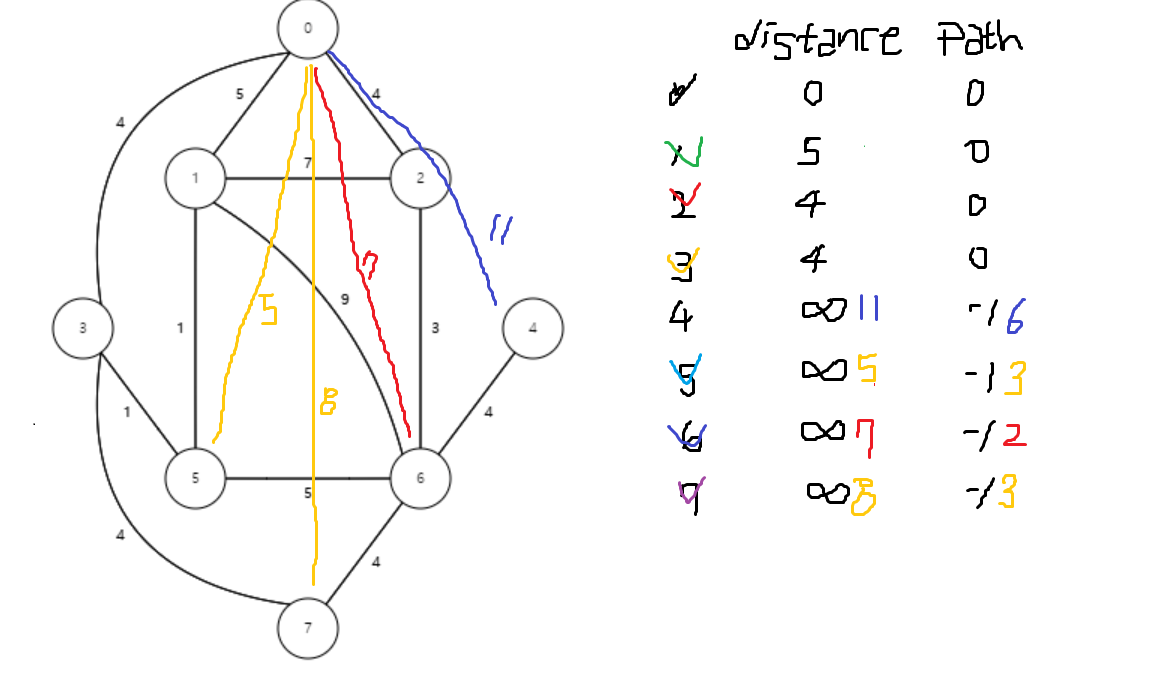 0
5 4
4
7
1 2
11
7
9
5
3 1 3 4
8
1 4
5 6
5
4 4
7
distance Path
0 0 0
1 5 0
2 4 0
3 4 0
4 ∞ 11 -1 6
5 ∞ 5 -1 3
6 ∞ 7 -1 2
7 ∞ 8 -1 3